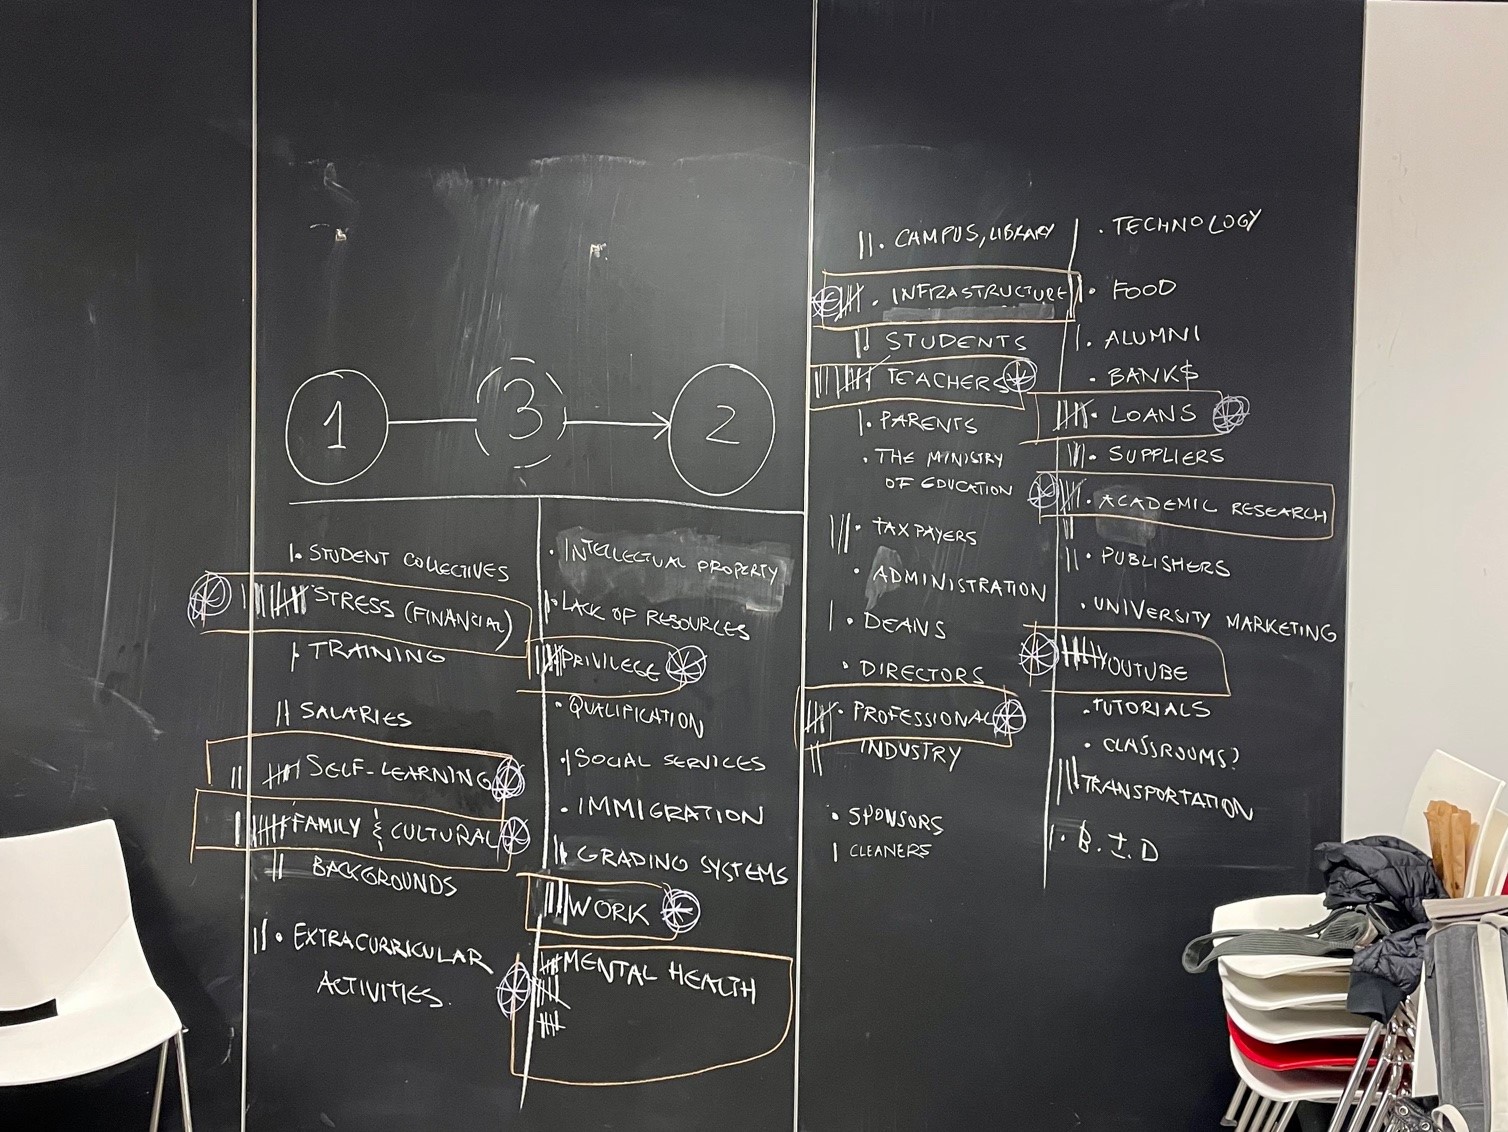 1
3
2
STUDENT COLLECTIVES
STRESS (FINANCIAL)
TRAINING
SALARIES
SELF-LEARNING
FAMILY & CULTURAL
BACKGROUNDS
EXTRACURRICULAR
ACTIVITIES.
INTELLECTUAL PROPERTY
LACK OF RESOURCES
PRIVILEGE
QUALIFICATION
SOCIAL SERVICES
IMMIGRATION
GRADING SYSTEMS
WORK
MENTAL HEALTH
CAMPUS, LIBRARY
INFRASTRUCTURE
STUDENTS
TEACHERS
PARENTS
THE MINISTRY
OF EDUCATION
TAXPAYERS
ADMINISTRATION
DEANS
DIRECTORS
PROFESSIONAL
INDUSTRY
SPONSORS
CLEANERS
TECHNOLOGY
FOOD
ALUMNI
BANK$
LOANS
SUPPLIERS
ACADEMIC RESEARCH
PUBLISHERS
UNIVERSITY MARKETING
YOUTUBE
TUTORIALS
CLASSROOMS?
TRANSPORTATION
B.I.D